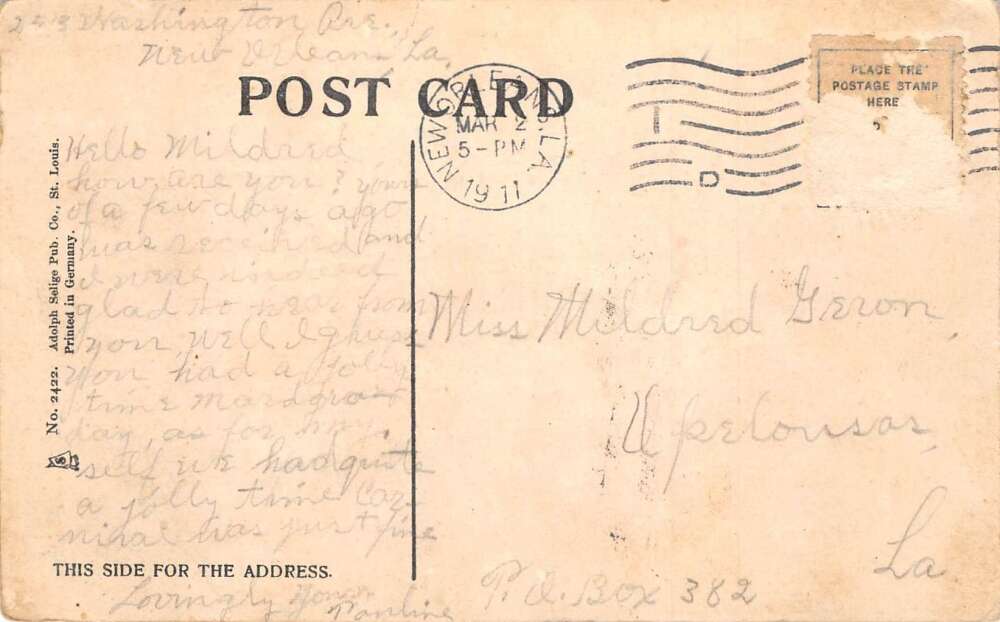 Washington Ave.,
New Orleans La.
POST CARD
NEW ORLEANS, LA.
MAR 2
5-PM
1911
D
PLACE THE
POSTAGE STAMP
HERE
Hello Mildred
how are you? yours
of a few days ago
was received and
I were indeed
glad to hear from
you, Well I guess
you had a jolly
time mardgras
day, as for my
self we had quite
a jolly time Car
nival was just fine
Lovingly Yours
Pauline
Miss Mildred Geron,
Opelousas,
La
P.O. Box 382
No. 2422. Adolph Selige Pub. Co., St. Louis.
Printed in Germany.
S
THIS SIDE FOR THE ADDRESS.